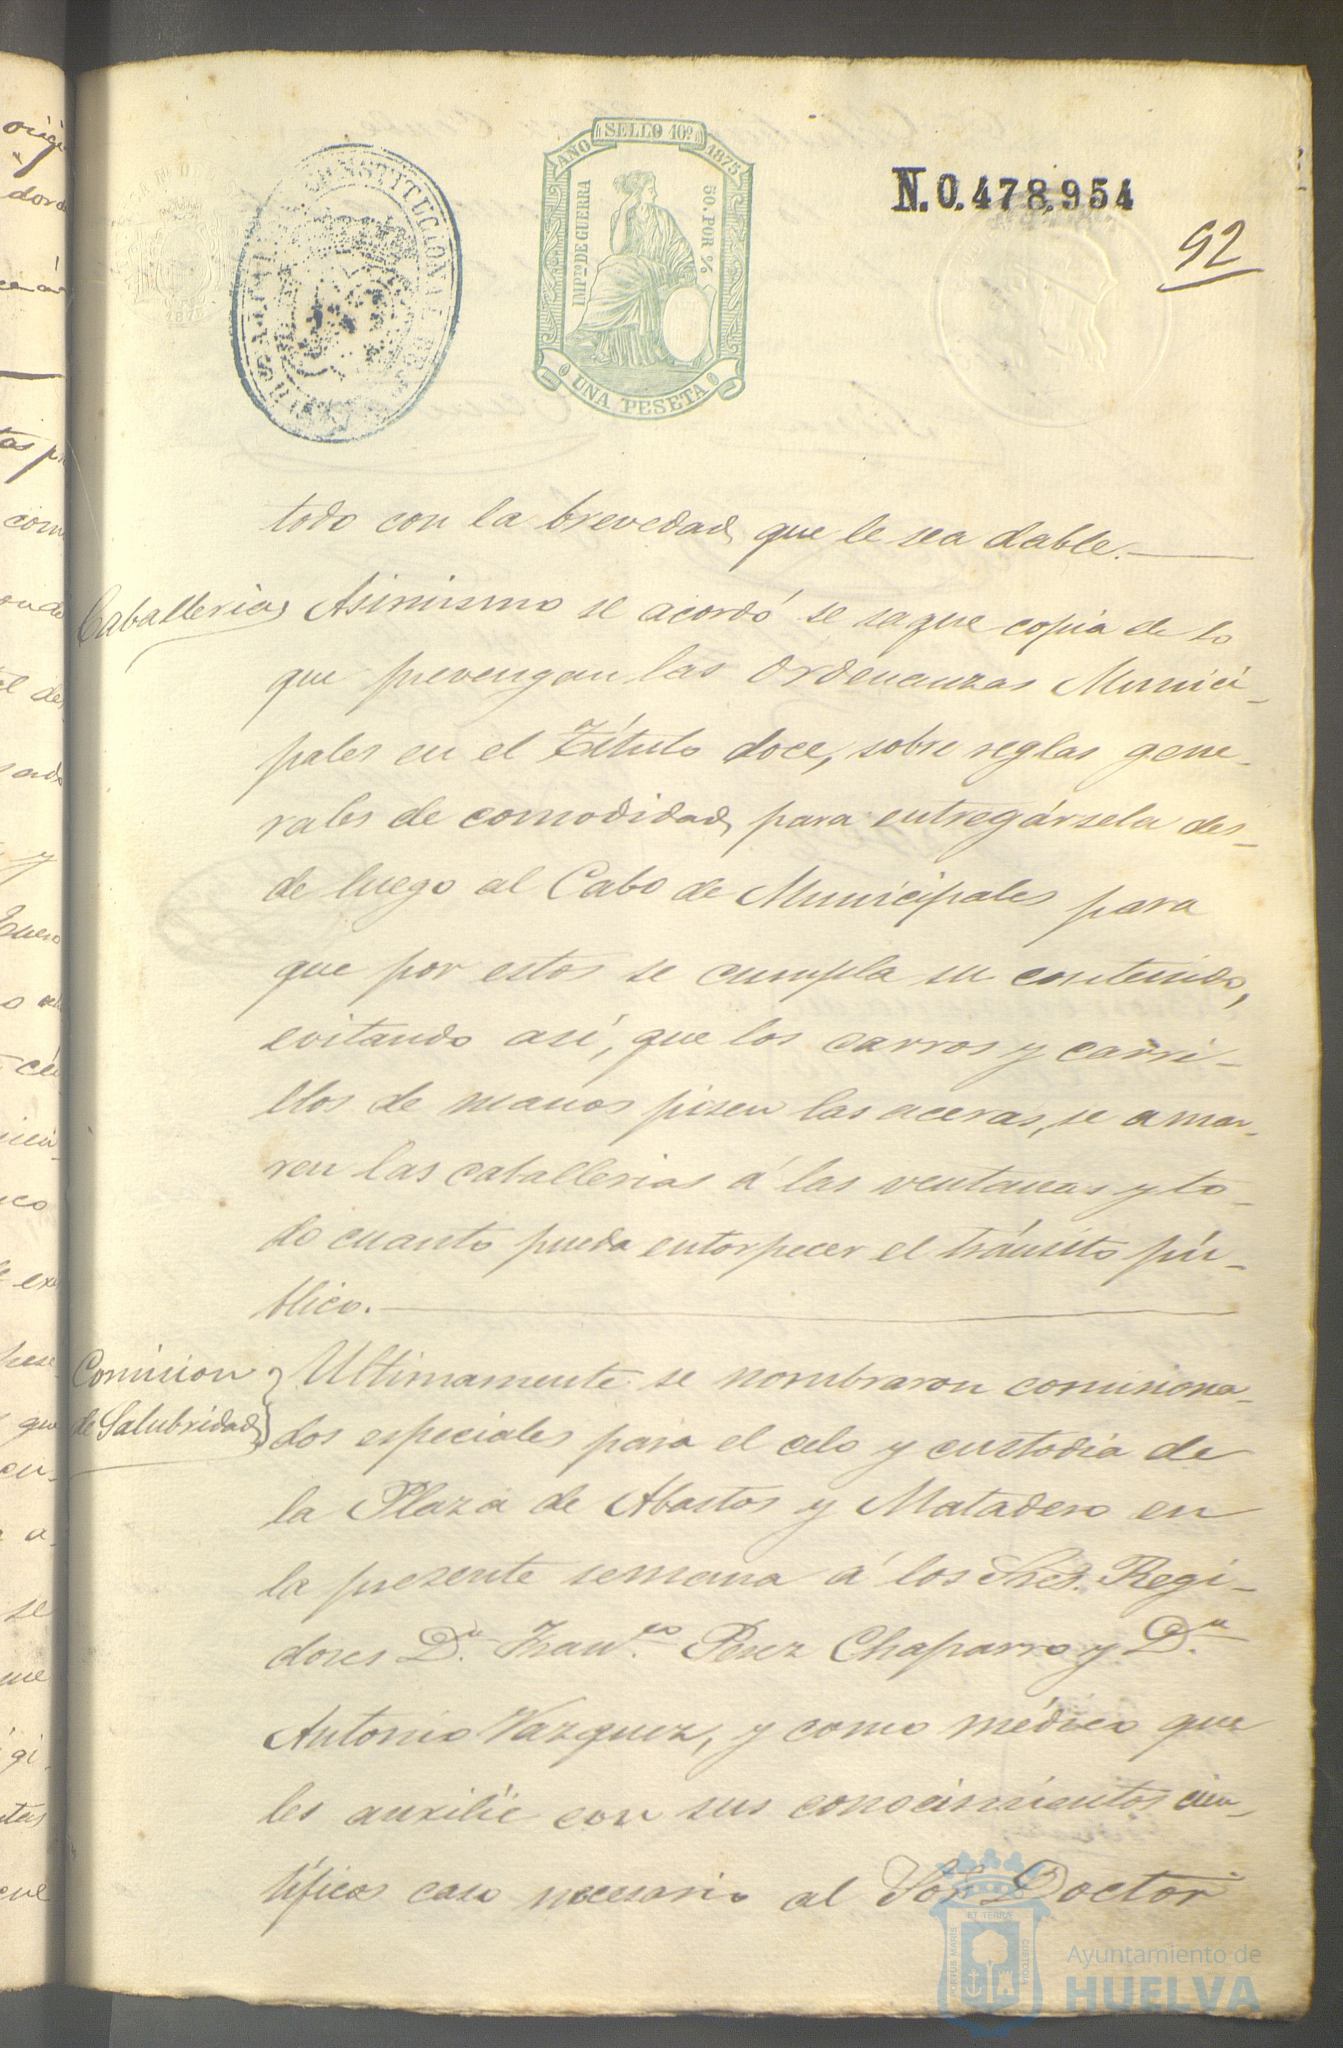 AÑO SELLO 10º 1875
IMPº DE GUERRA
50. POR %
UNA PESETA
N.0.478,954
92
todo con la brevedad que le sea dable.
Caballerias
Asimismo se acordó se saque copia de lo
que prevengan las Ordenanzas Munici-
pales en el Título doce, sobre reglas gene-
rales de comodidad para entregársela des-
de luego al Cabo de Municipales para
que por estos se cumpla su contenido,
evitando así, que los carros y carri-
llos de manos pisen las aceras, se amar-
ren las caballerias á las ventanas y to-
do cuanto pueda entorpecer el tránsito pú-
blico.
Comision
de Salubridad
Ultimamente se nombraron comisiona-
dos especiales para el celo y custodia de
la Plaza de Abastos y Matadero en
la presente semana á los Sres. Regi-
dores Dn. Franco. Perez Chaparro y Dn.
Antonio Vazquez, y como médico que
les auxilie con sus conocimientos cien-
tíficos caso necesario al Sor. Doctor
Ayuntamiento de
HUELVA